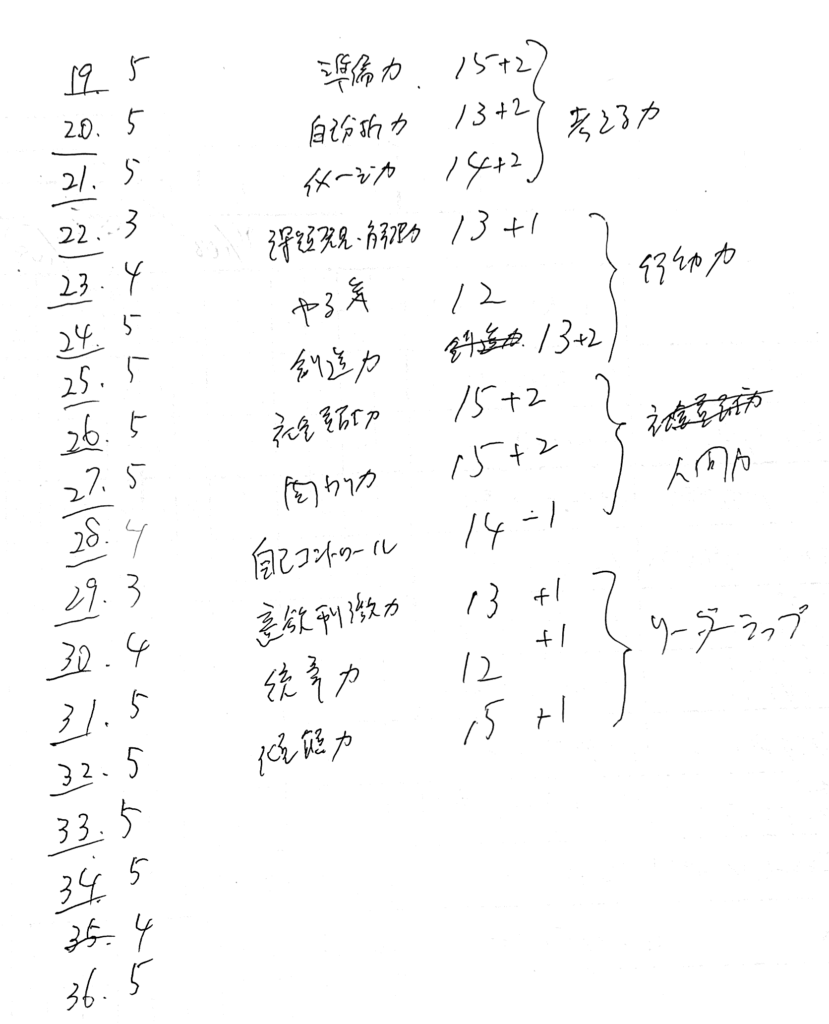 19. 5
20. 5
21. 5
22. 3
23. 4
24. 5
25. 5
26. 5
27. 5
28. 4
29. 3
30. 4
31. 5
32. 5
33. 5
34. 5
35. 4
36. 5
準備力 15+2
自己分析力 13+2
14+2
考える力
課題発見・解決力 13+1
やる気 12
創造力 創造力 13+2
行動力
15+2
15+2
自己コントロール 14-1
人間力
意欲刺激力 13 +1
統率力 12 +1
15 +1
リーダーシップ